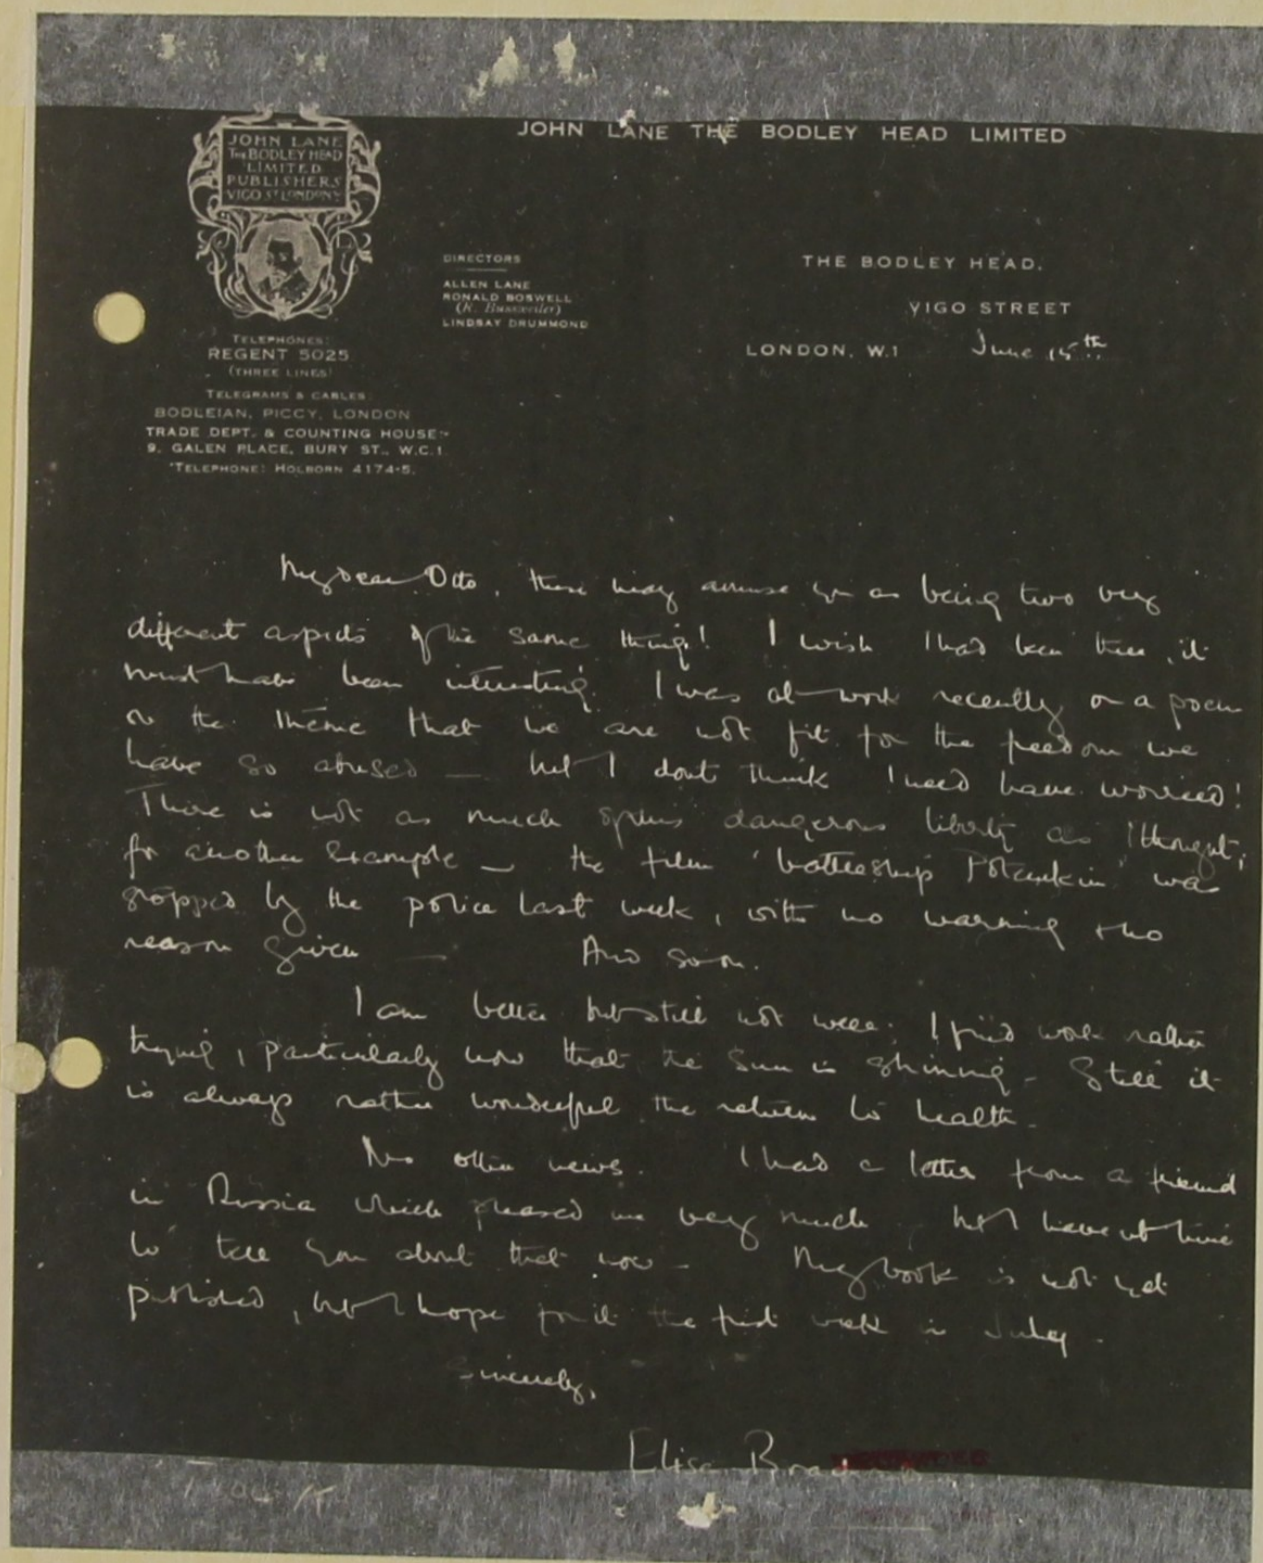 JOHN LANE THE BODLEY HEAD LIMITED
JOHN LANE
THE BODLEY HEAD
LIMITED
PUBLISHERS
VIGO ST LONDON
DIRECTORS
ALLEN LANE
RONALD BOSWELL
LINDSAY DRUMMOND
THE BODLEY HEAD,
VIGO STREET
LONDON, W.1 June 15th
TELEPHONES:
REGENT 5025
(THREE LINES)
TELEGRAMS & CABLES:
BODLEIAN, PICCY, LONDON
TRADE DEPT. & COUNTING HOUSE:-
9, GALEN PLACE, BURY ST., W.C.1
TELEPHONE: HOLBORN 4174-5.
My dear Otto, these may amuse you as being two very
different aspects of the same thing! I wish I had been there, it
must have been interesting. I was at work recently on a poem
on the theme that we are not fit for the freedom we
have so abused — but I dont think I need have worried!
There is not as much dangerous liberty as I thought,
for another example — the film 'battleship Potemkin' was
stopped by the police last week, with no warning + no
reason given — And so on.
I am better but still not well. I find work rather
trying, particularly now that the sun is shining - Still it
is always rather wonderful the return to health.
No other news. I had a letter from a friend
in Russia which pleased me very much - but I havent time
to tell you about that now - My book is not yet
published, but I hope for it the first week in July -
Sincerely,
Elisa